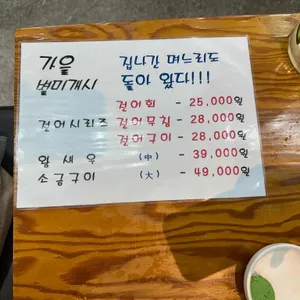 가을 집나간 며느리도
별미개시 돌아 왔다!!!
전어회 - 25,000원
전어시리즈 전어무침 - 28,000원
전어구이 - 28,000원
왕새우 (中) - 39,000원
소금구이 (大) - 49,000원